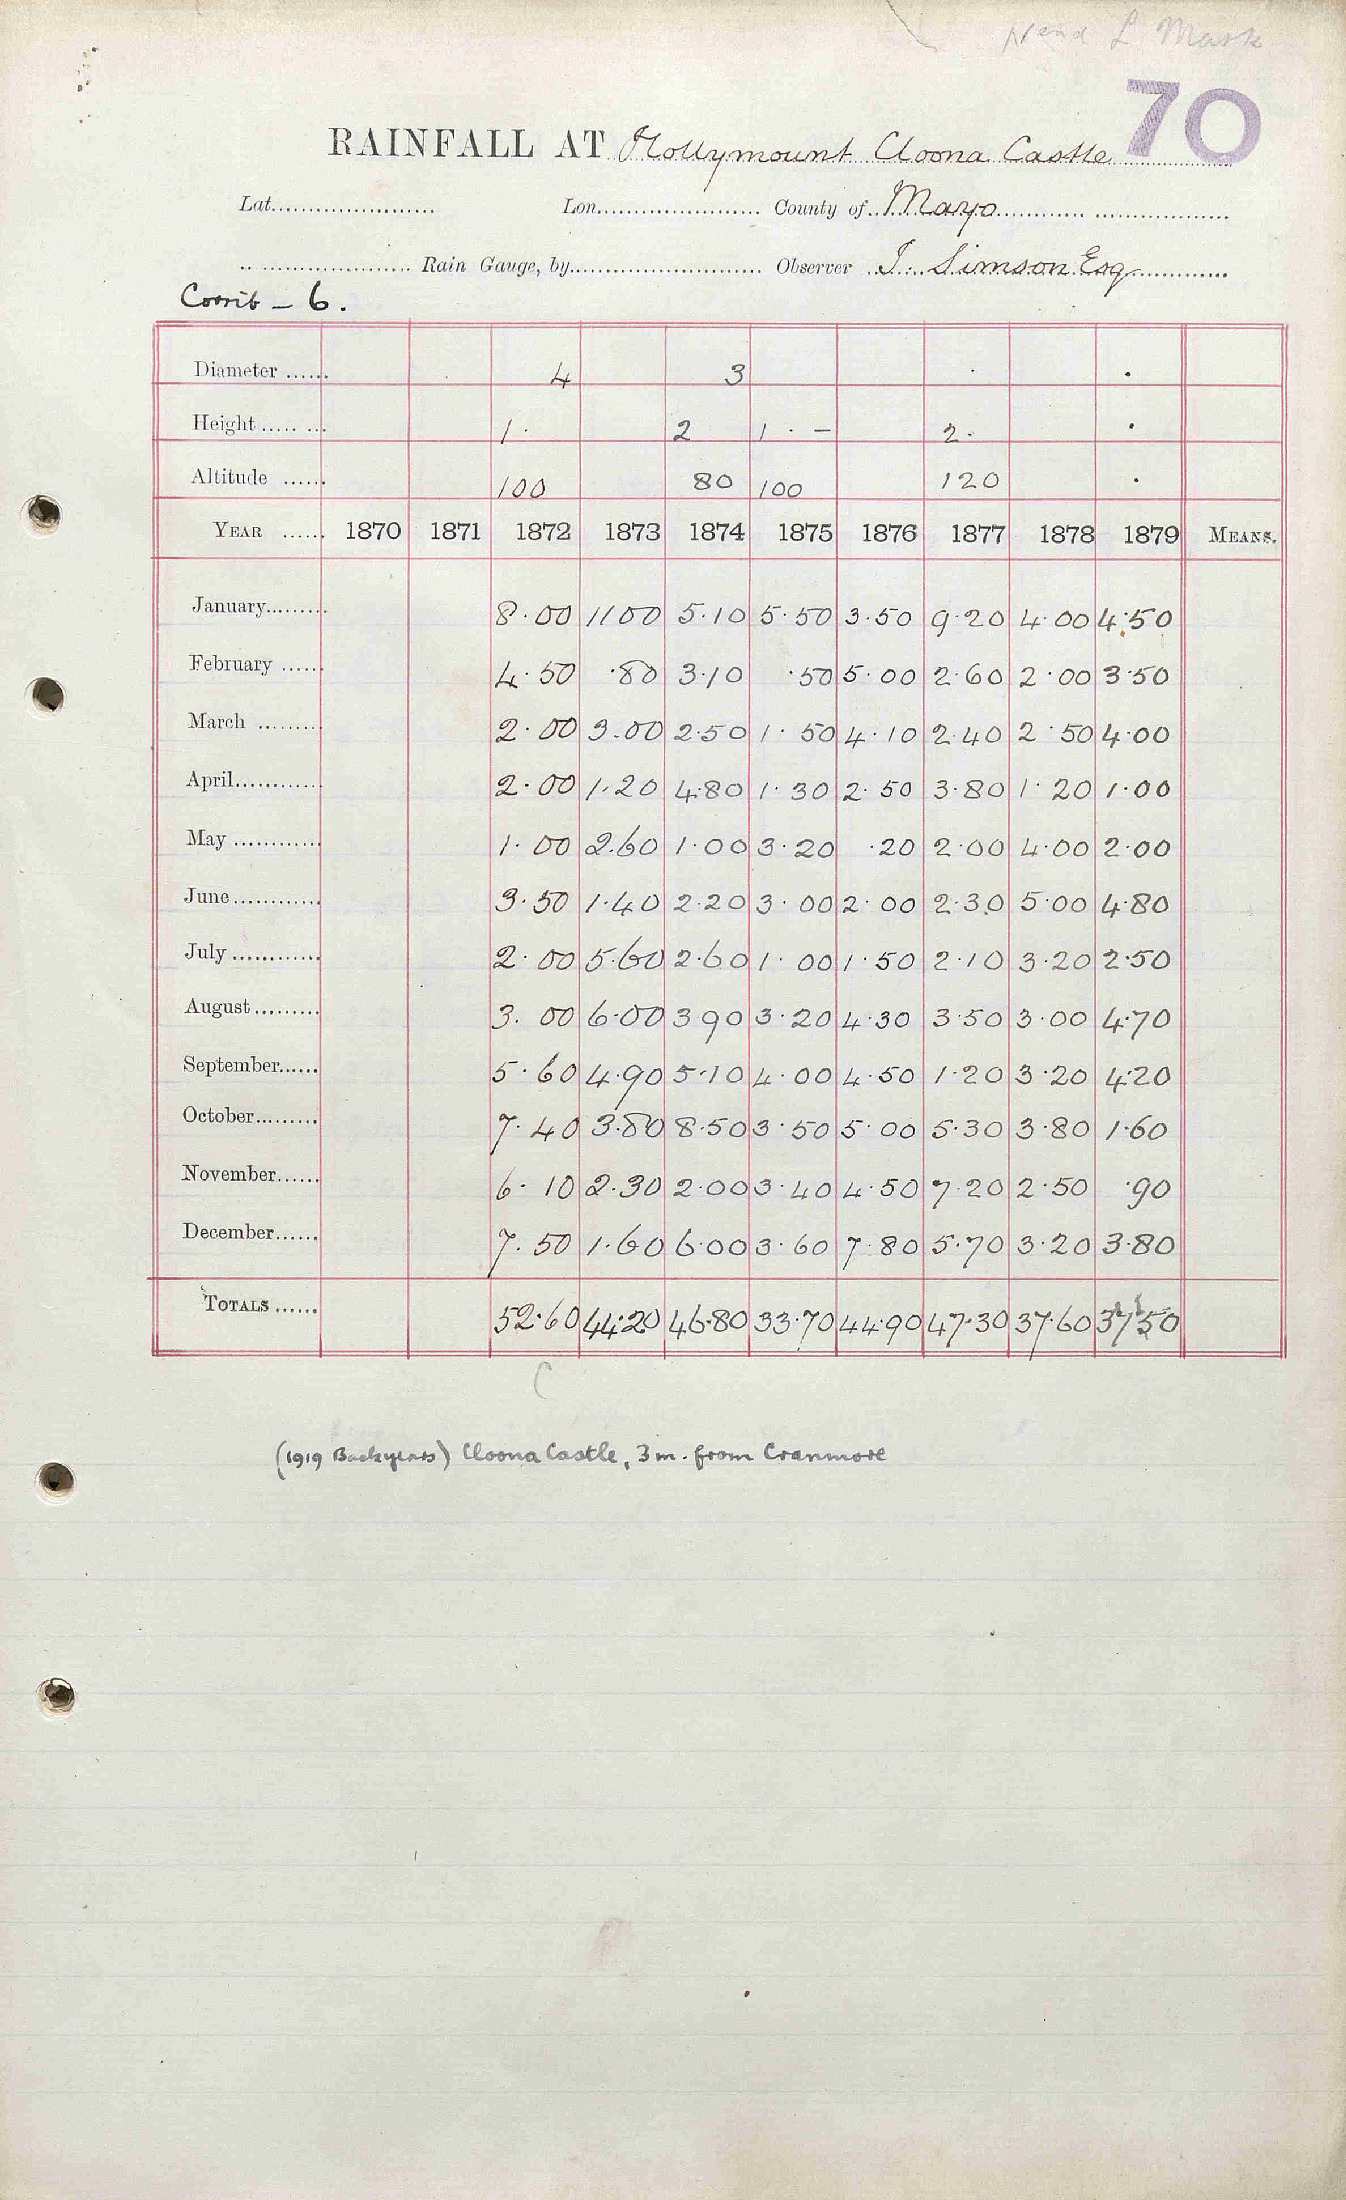 Head L Mask
70
RAINFALL AT Hollymount Cloona Castle
Lat. Lon. County of Mayo
Rain Gauge, by Observer J. Simson Esq
Corrib - 6.
Diameter 4 3 · ·
Height 1 · 2 1 · - 2 · ·
Altitude 100 80 100 120 ·
YEAR 1870 1871 1872 1873 1874 1875 1876 1877 1878 1879 MEANS.
January 8·00 11 00 5·10 5·50 3·50 9·20 4·00 4·50
February 4·50 ·80 3·10 ·50 5·00 2·60 2·00 3·50
March 2·00 3·00 2·50 1·50 4·10 2·40 2·50 4·00
April 2·00 1·20 4·80 1·30 2·50 3·80 1·20 1·00
May 1·00 2·60 1·00 3·20 ·20 2·00 4·00 2·00
June 3·50 1·40 2·20 3·00 2·00 2·30 5·00 4·80
July 2·00 5·60 2·60 1·00 1·50 2·10 3·20 2·50
August 3·00 6·00 3 90 3·20 4·30 3·50 3·00 4·70
September 5·60 4·90 5·10 4·00 4·50 1·20 3·20 4·20
October 7·40 3·80 8·50 3·50 5·00 5·30 3·80 1·60
November 6·10 2·30 2·00 3·40 4·50 7·20 2·50 ·90
December 7·50 1·60 6·00 3·60 7·80 5·70 3·20 3·80
TOTALS 52·60 44·20 46·80 33·70 44·90 47·30 37·60 37·50
C
(1919 Backyears) Cloona Castle, 3 m. from Cranmore